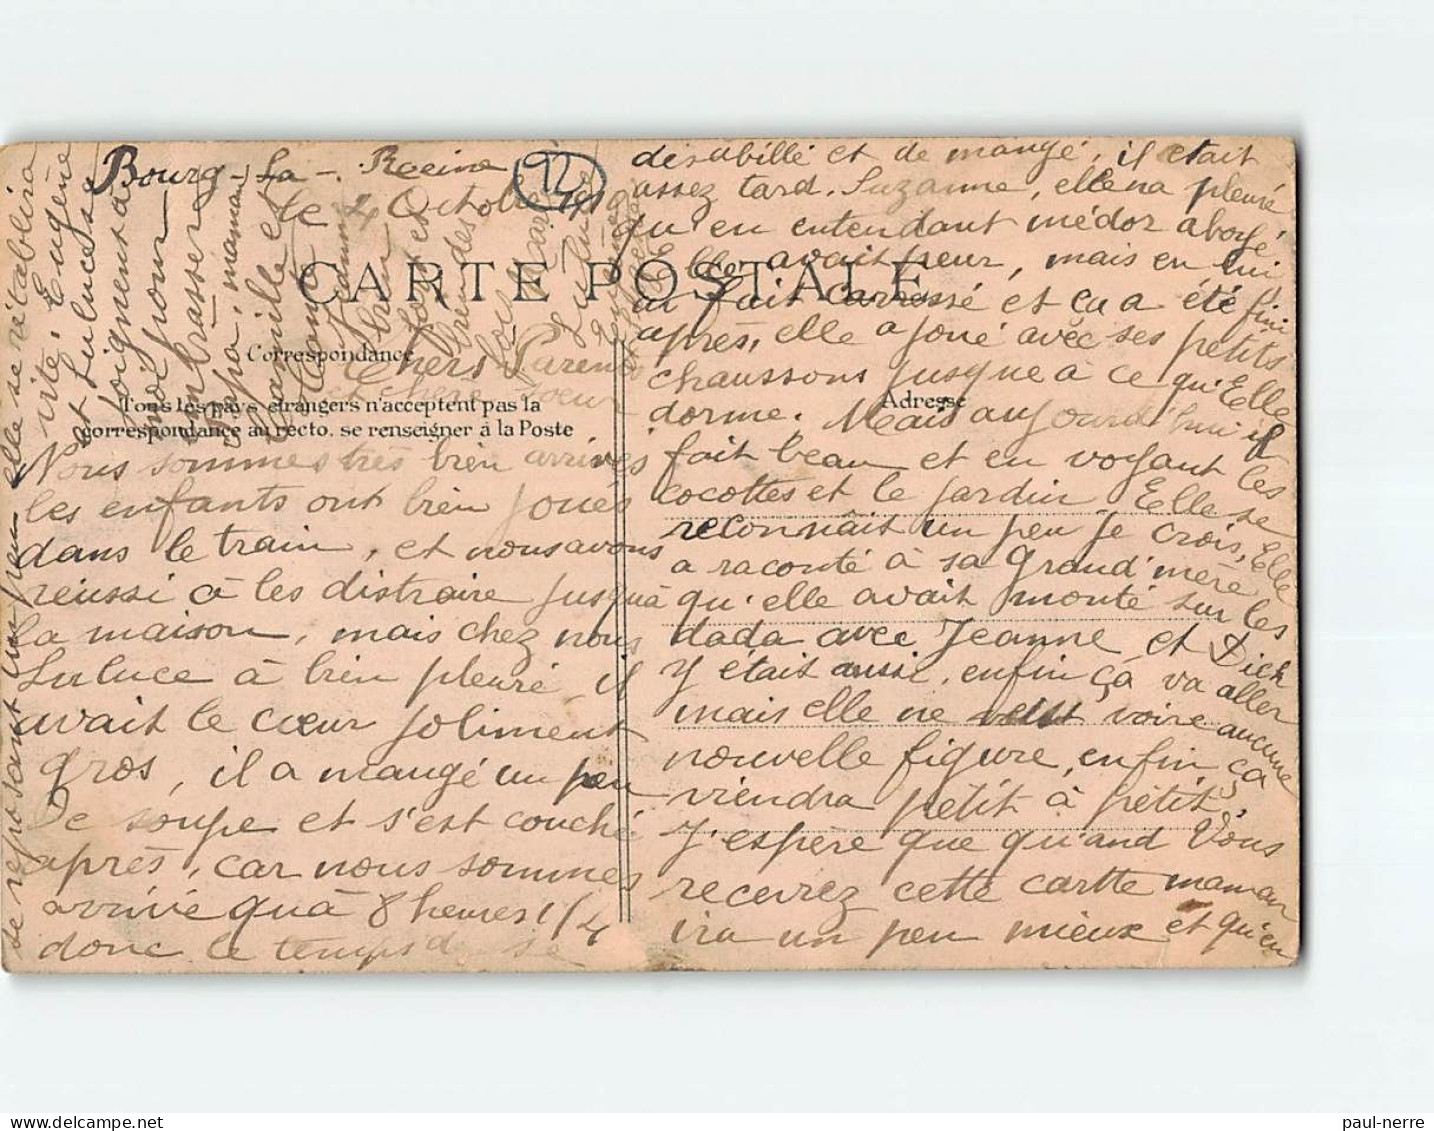 Bourg-La-Reine
le 4 Octobre
92
CARTE POSTALE
Correspondance
Adresse
Tous les pays étrangers n'acceptent pas la
correspondance au recto. se renseigner à la Poste
Chers Parents
et chère sœur
Nous sommes très bien arrivés
les enfants ont bien joués
dans le train, et nous avons
réussi à les distraire jusqu'à
la maison, mais chez nous
Luluce à bien pleuré, il
avait le cœur joliment
gros, il a mangé un peu
De soupe et s'est couché
après, car nous sommes
arrivé qu'à 8 heures 1/4
donc le temps de se
désabillé et de mangé, il était
assez tard. Suzanne, elle na pleuré
qu'en entendant médor aboyé
Elle avait peur, mais en lui
a fait carressé et ça a été fini
après, elle a joué avec ses petits
chaussons jusque à ce qu'Elle
dorme. Mais aujourd'hui il
fait beau et en voyant les
cocottes et le jardin Elle se
reconnait un peu je crois, Elle
a raconté à sa Grand'mère
qu'elle avait monté sur les
dada avec Jeanne et Dich
y était aussi, enfin ça va aller
mais elle ne veut voire aucune
nouvelle figure, enfin ça
viendra petit à petit.
J'espère que quand Vous
recevrez cette cartte maman
ira un peu mieux et qu'en
se reposant un peu elle se rétablira
vite. Eugène
et Luluce se
joignent à
moi pour
embrasser
papa, maman
Camille et
Jeanne
bien fort et
bien des
Luluce
paul-nerre